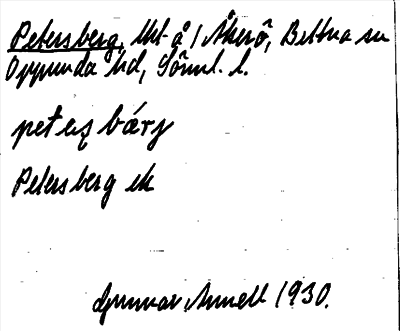 Petersberg, lht å /Åkerö, Bettna sn
Oppunda hd, Södml. l.
petəʂ bárj
Petersberg ek
Gunnar Annell 1930.